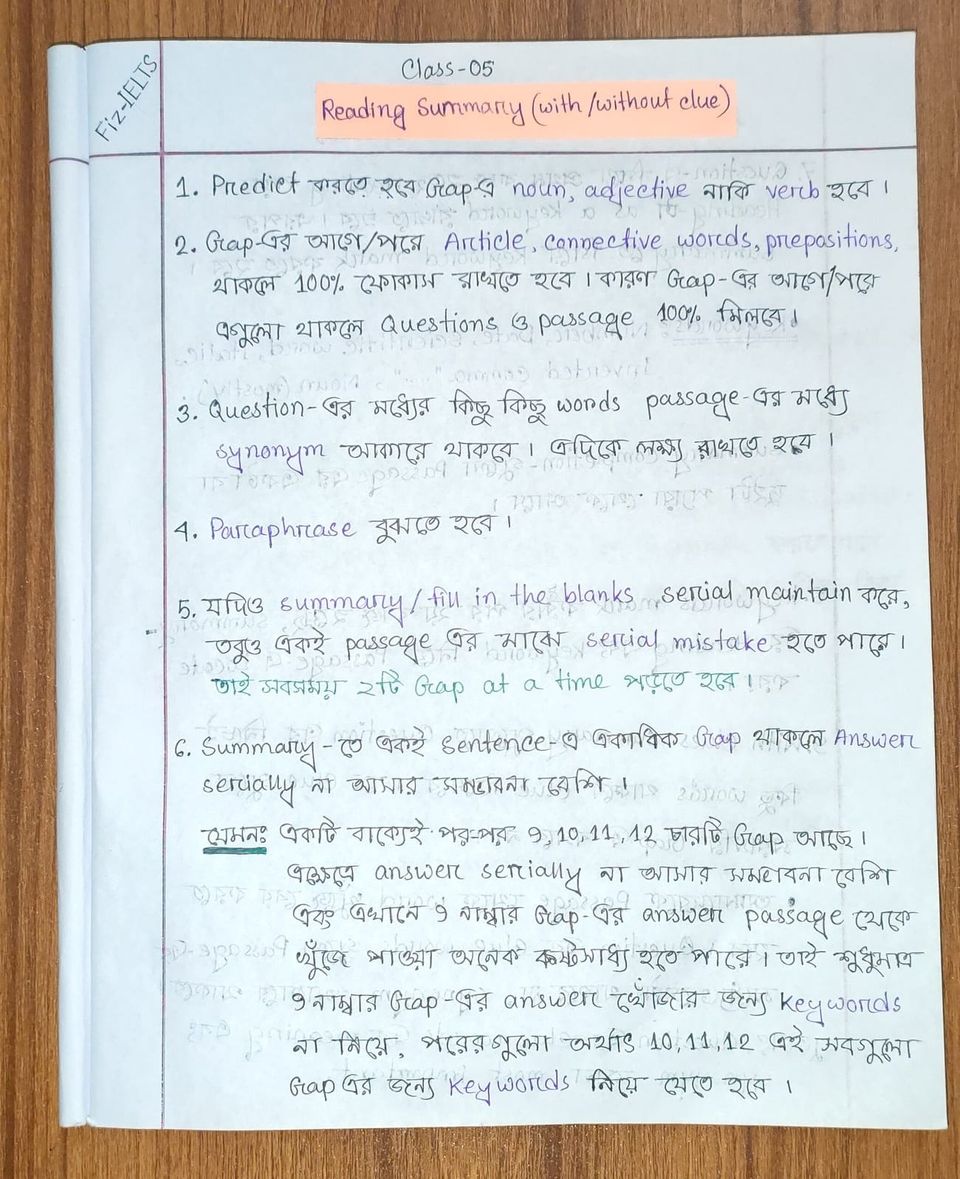 Fiz-IELTS
Class-05
Reading Summary (with/without clue)
1. Predict করতে হবে Gap-এ noun, adjective নাকি verb হবে।
2. Gap-এর আগে/পরে Article, connective words, prepositions,
থাকলে 100% ফোকাস রাখতে হবে। কারণ Gap-এর আগে/পরে
এগুলো থাকলে Questions ও passage 100% মিলবে।
3. Question-এর মধ্যের কিছু কিছু words passage-এর মধ্যে
synonym আকারে থাকবে। এদিকে লক্ষ্য রাখতে হবে।
4. Paraphrase বুঝতে হবে।
5. যদিও summary/fill in the blanks serial maintain করে,
তবুও একই passage এর মাঝে serial mistake হতে পারে।
তাই সবসময় ২টি Gap at a time পড়তে হবে।
6. Summary-তে একই sentence-এ একাধিক Gap থাকলে Answer
serially না আসার সম্ভাবনা বেশি।
যেমনঃ একটি বাক্যেই পর-পর 9,10,11,12 চারটি Gap আছে।
এক্ষেত্রে answer serially না আসার সম্ভাবনা বেশি
এবং এখানে 9 নাম্বার Gap-এর answer passage থেকে
খুঁজে পাওয়া অনেক কষ্টসাধ্য হতে পারে। তাই শুধুমাত্র
9 নাম্বার Gap-এর answer খোঁজার জন্যে Keywords
না নিয়ে, পরেরগুলো অর্থাৎ 10,11,12 এই সবগুলো
Gap এর জন্যে Keywords নিয়ে যেতে হবে।